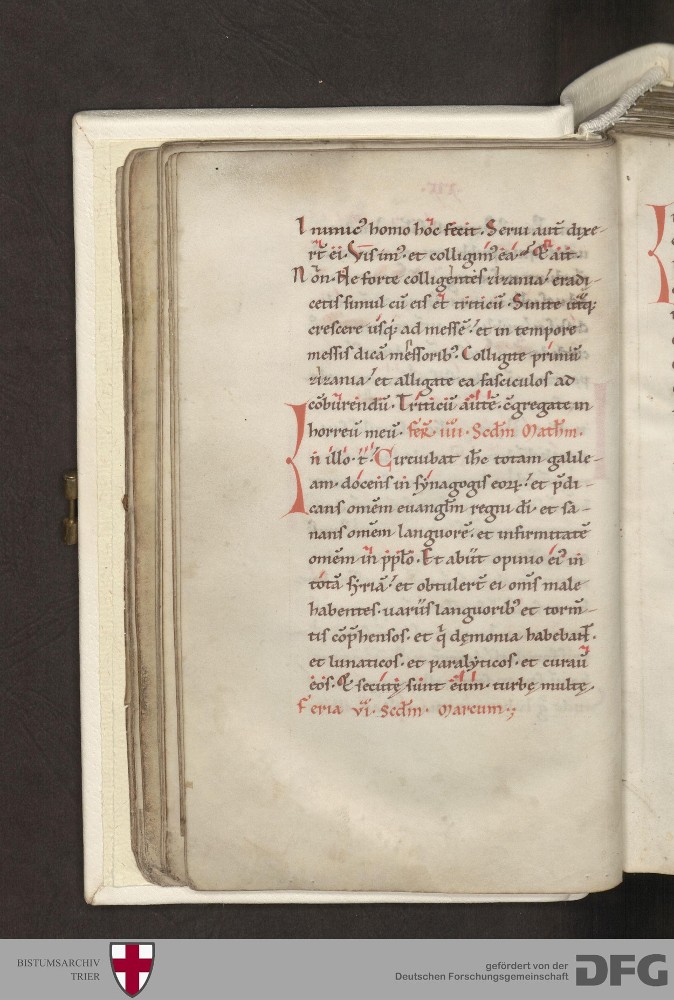 Inimic' homo hoc fecit. Serui aut̄ dixe-
rt̄ ei. Vis im'. et colligim' ea. Et ait.
Nōn. Ne forte colligentes zizania. eradi-
cetis simul cū eis et triticū. Sinite utq;
crescere usq; ad messē. et in tempore
messis dicā messorib'. Colligite primū
zizania. et alligate ea fasciculos ad
cōburendū. Triticū autē. c̄gregate in
horreū meū. Fer̄. iiii. Scdm Math̄m.
In illo. t̄. Circuibat ih̄c totam galile-
am. docens in synagogis eoꝝ. et p̄di-
cans omēm euangl̄m regni dī. et sa-
nans omēm languorē. et infirmitatē
omēm in pp̄lo. Et abiit opinio ei' in
totā syriā. et obtulert̄ ei om̄s male
habentes. uariis languorib' et torm̄-
tis cōp̄hensos. et q̄ demonia habebant̄.
et lunaticos. et paralyticos. et curau̅
eos. Et secutę sunt eum. turbę multę.
Feria vi. Scdm. Marcum.;
BISTUMSARCHIV
TRIER
gefördert von der
Deutschen Forschungsgemeinschaft
DFG